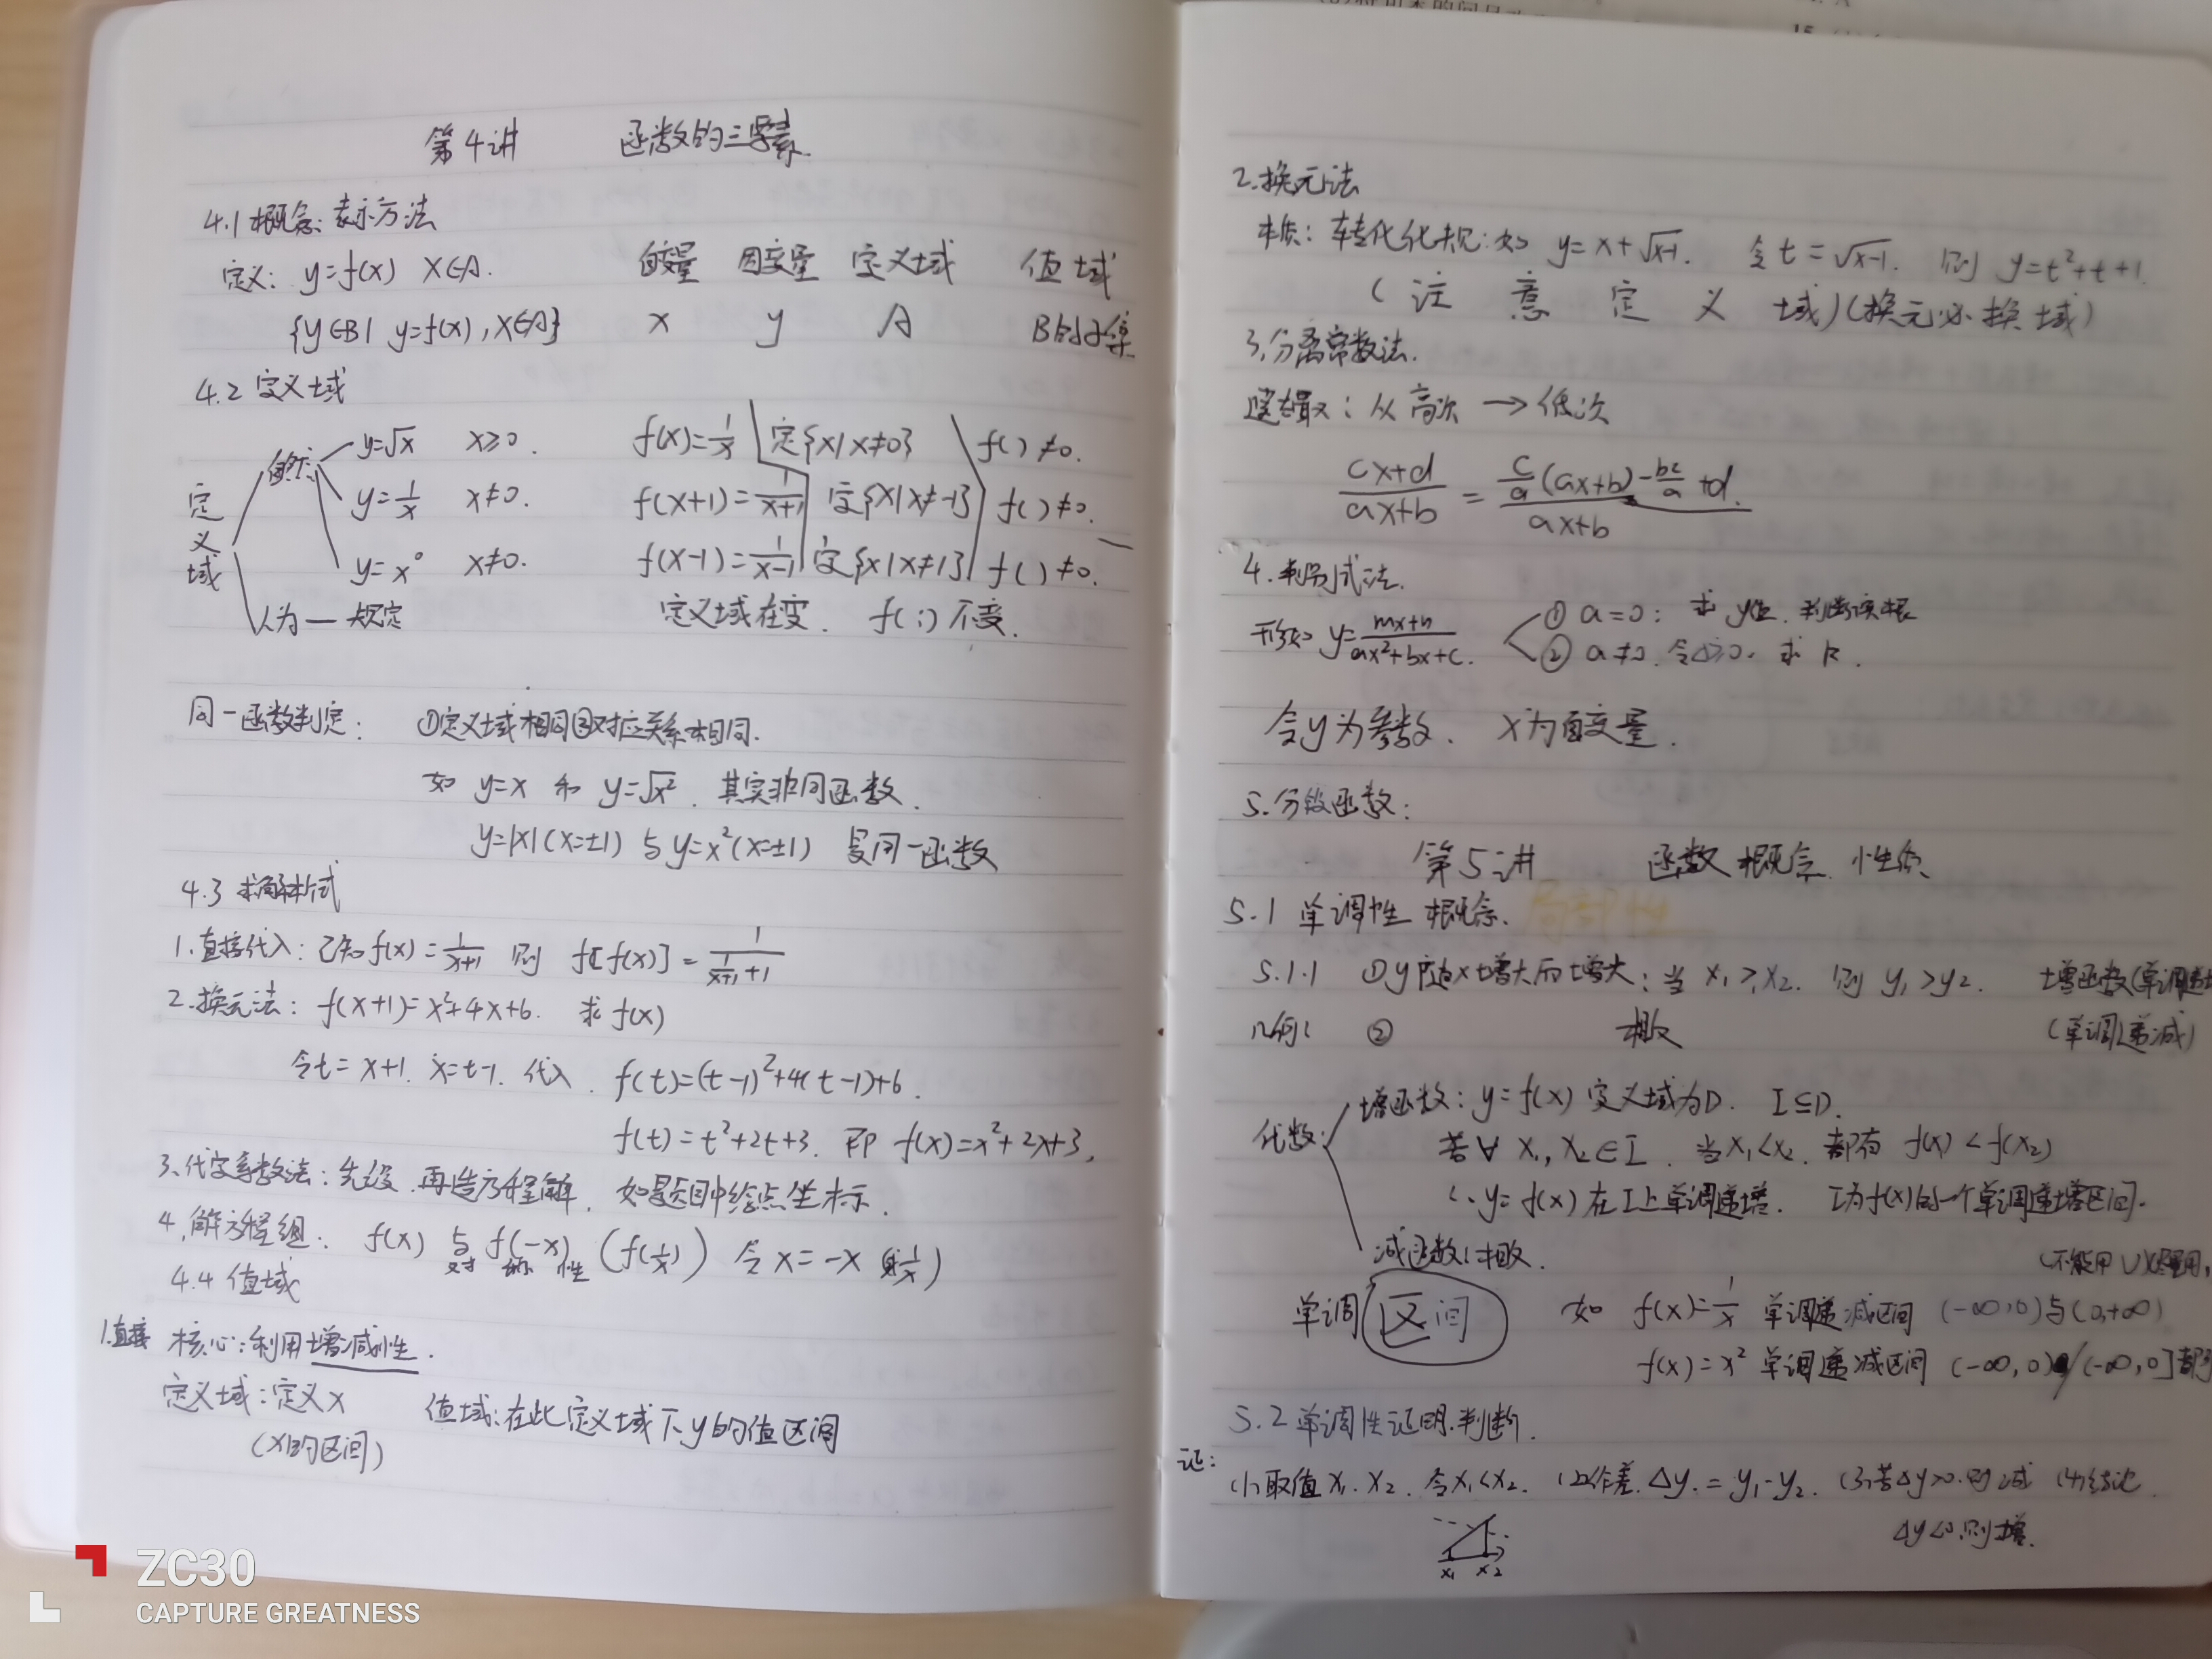 第4讲 函数的三要素
4.1 概念:表示方法
定义: y=f(x) x∈A. 自变量 因变量 定义域 值域
{y∈B| y=f(x), x∈A} x y A B的子集
4.2 定义域
定义域
自然
y=√x x≥0. f(x)=1/x 定{x|x≠0} f( )≠0.
y=1/x x≠0. f(x+1)=1/(x+1) 定{x|x≠-1} f( )≠0.
y=x⁰ x≠0. f(x-1)=1/(x-1) 定{x|x≠1} f( )≠0.
人为—规定 定义域在变. f(;)不变.
同一函数判定: ①定义域相同②对应关系相同.
如 y=x 和 y=√x². 其实非同函数.
y=|x|(x=±1) 与y=x²(x=±1) 是同一函数
4.3 求解析式
1.直接代入: 已知f(x)=1/(x+1) 则 f[f(x)]=1/(1/(x+1)+1)
2.换元法: f(x+1)=x²+4x+6. 求f(x)
令t=x+1. x=t-1. 代入. f(t)=(t-1)²+4(t-1)+6.
f(t)=t²+2t+3. 即 f(x)=x²+2x+3,
3.代定系数法:先设.再造方程解. 如题目中给点坐标.
4.解方程组: f(x) 与 f(-x) (f(1/x)) 令x=-x (或1/x)
对称性
4.4 值域
1.直接 核心:利用增减性.
定义域:定义x 值域:在此定义域下y的值区间
(x的区间)
2.换元法
本质: 转化化规:如 y=x+√x-1. 令t=√x-1. 则 y=t²+t+1.
(注意定义域)(换元必换域)
3.分离常数法.
逻辑: 从高次→低次
(cx+d)/(ax+b) = (c/a(ax+b)-bc/a+d)/(ax+b)
4.判别式法.
形如 y=(mx+n)/(ax²+bx+c). ①a=0: 求y值.判断该根
②a≠0.令Δ≥0. 求R.
令y为参数. x为自变量.
5.分段函数:
第5讲 函数概念.性质
5.1 单调性概念. 局部性
5.1.1 ①y随x增大而增大:当x₁>x₂. 则y₁>y₂. 增函数(单调递增
几何: ② 相反 (单调递减)
代数:
增函数:y=f(x)定义域为D. I⊆D.
若∀x₁,x₂∈I. 当x₁<x₂. 都有f(x₁)<f(x₂)
∴y=f(x)在I上单调递增. I为f(x)的一个单调递增区间.
减函数:相反. (不能用∪
单调区间 如 f(x)=1/x 单调递减区间 (-∞,0)与(0,+∞)
f(x)=x² 单调递减区间 (-∞,0)/(-∞,0]都
5.2 单调性证明.判断.
证:
(1)取值x₁.x₂.令x₁<x₂. (2)作差.Δy.=y₁-y₂. (3)若Δy>0.则减 (4)结论.
Δy<0.则增.
x₁ x₂
ZC30
CAPTURE GREATNESS